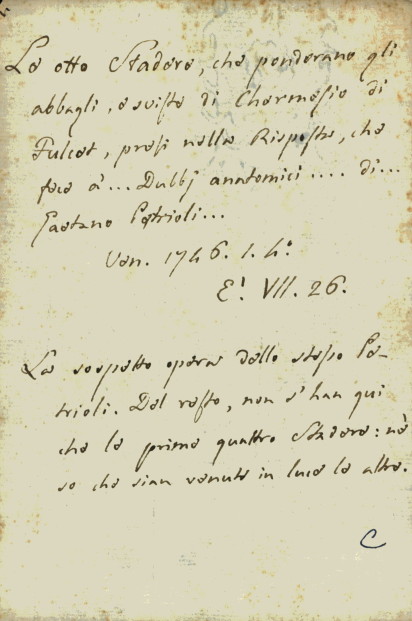 Le otto Stadere, che ponderano gli
abbagli, e sviste di Chermesio di
Fulcet, presi nella Risposta, che
fece a'... Dubbj anatomici .... di...
Gaetano Petrioli...
Ven. 1746. 1. 4°
E! VII. 26.
La sospetto opera dello stesso Pe-
trioli. Del resto, non s'han qui
che le prime quattro Stadere: nè
so che sian venute in luce le altre.
C